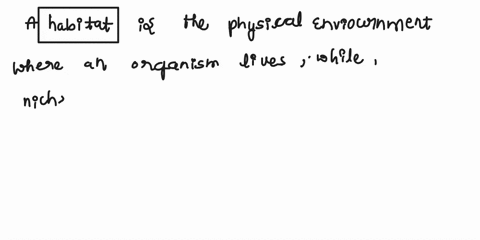 A habitat is the physical enviournment
where an organism lives, while,
nich